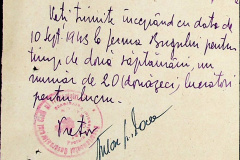 Veți trimite începând cu data de
10 Sept. 1943 la ferma Bregului pentru
timp de două săptămâni, un
număr de 20 (douăzeci) lucrători
pentru lucru.
Pretor